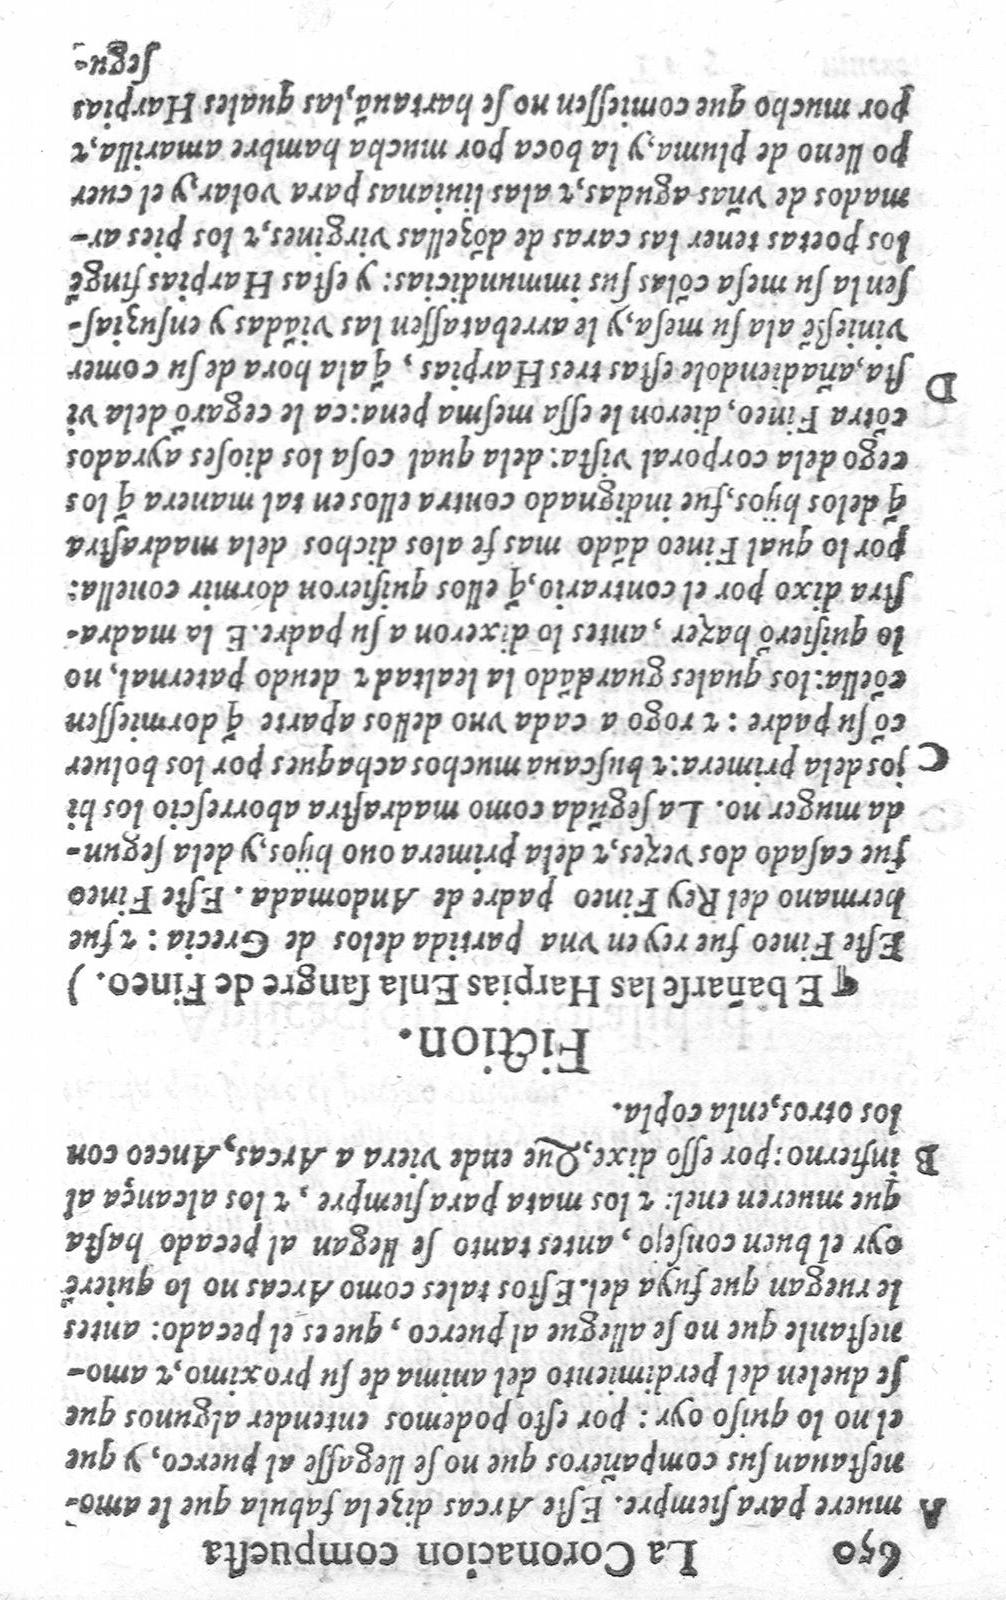 650 La Coronacion compuesta
A muere para siempre. Este Arcas dizela fabula que le amo-
nestauan sus compañeros que no se llegasse al puerco, y que
el no lo quiso oyr: por esto podemos entender algunos que
se duelen del perdimiento del anima de su proximo, τ amo-
nestanle que no se allegue al puerco, que es el pecado: antes
le ruegan que fuya del. Estos tales como Arcas no lo quierē
oyr el buen consejo, antes tanto se llegan al pecado hasta
que mueren enel: τ los mata para siempre, τ los alcança al
B infierno: por esso dixe, Que ende viera a Arcas, Anceo con
los otros, enla copla.
Fiction.
¶ E bañarse las Harpias Enla sangre de Fineo. )
Este Fineo fue rey en vna partida delos de Grecia: τ fue
hermano del Rey Fineo padre de Andomada. Este Fineo
fue casado dos vezes, τ dela primera ouo hijos, y dela segun-
da muger no. La segūda como madrastra aborrescio los hi
C jos dela primera: τ buscaua muchos achaques por los boluer
cō su padre: τ rogo a cada vno dellos aparte q̄ dormiessen
cōella: los quales guardādo la lealtad τ deudo paternal, no
lo quisierō hazer, antes lo dixeron a su padre. E la madra-
stra dixo por el contrario, q̄ ellos quisieron dormir conella:
por lo qual Fineo dādo mas fe alos dichos dela madrastra
q̄ delos hijos, fue indignado contra ellos en tal manera q̄ los
cego dela corporal vista: dela qual cosa los dioses ayrados
cōtra Fineo, dieron le essa mesma pena: ca le cegarō dela vi
D sta, añadiendole estas tres Harpias, q̄ ala hora de su comer
viniessē ala su mesa, y le arrebatassen las viādas y ensuzias-
sen la su mesa cōlas sus immundicias: y estas Harpias fingē
los poetas tener las caras de dōzellas virgines, τ los pies ar-
mados de vñas agudas, τ alas liuianas para volar, y el cuer
po lleno de pluma, y la boca por mucha hambre amarilla, τ
por mucho que comiessen no se hartauā, las quales Harpias
segu-